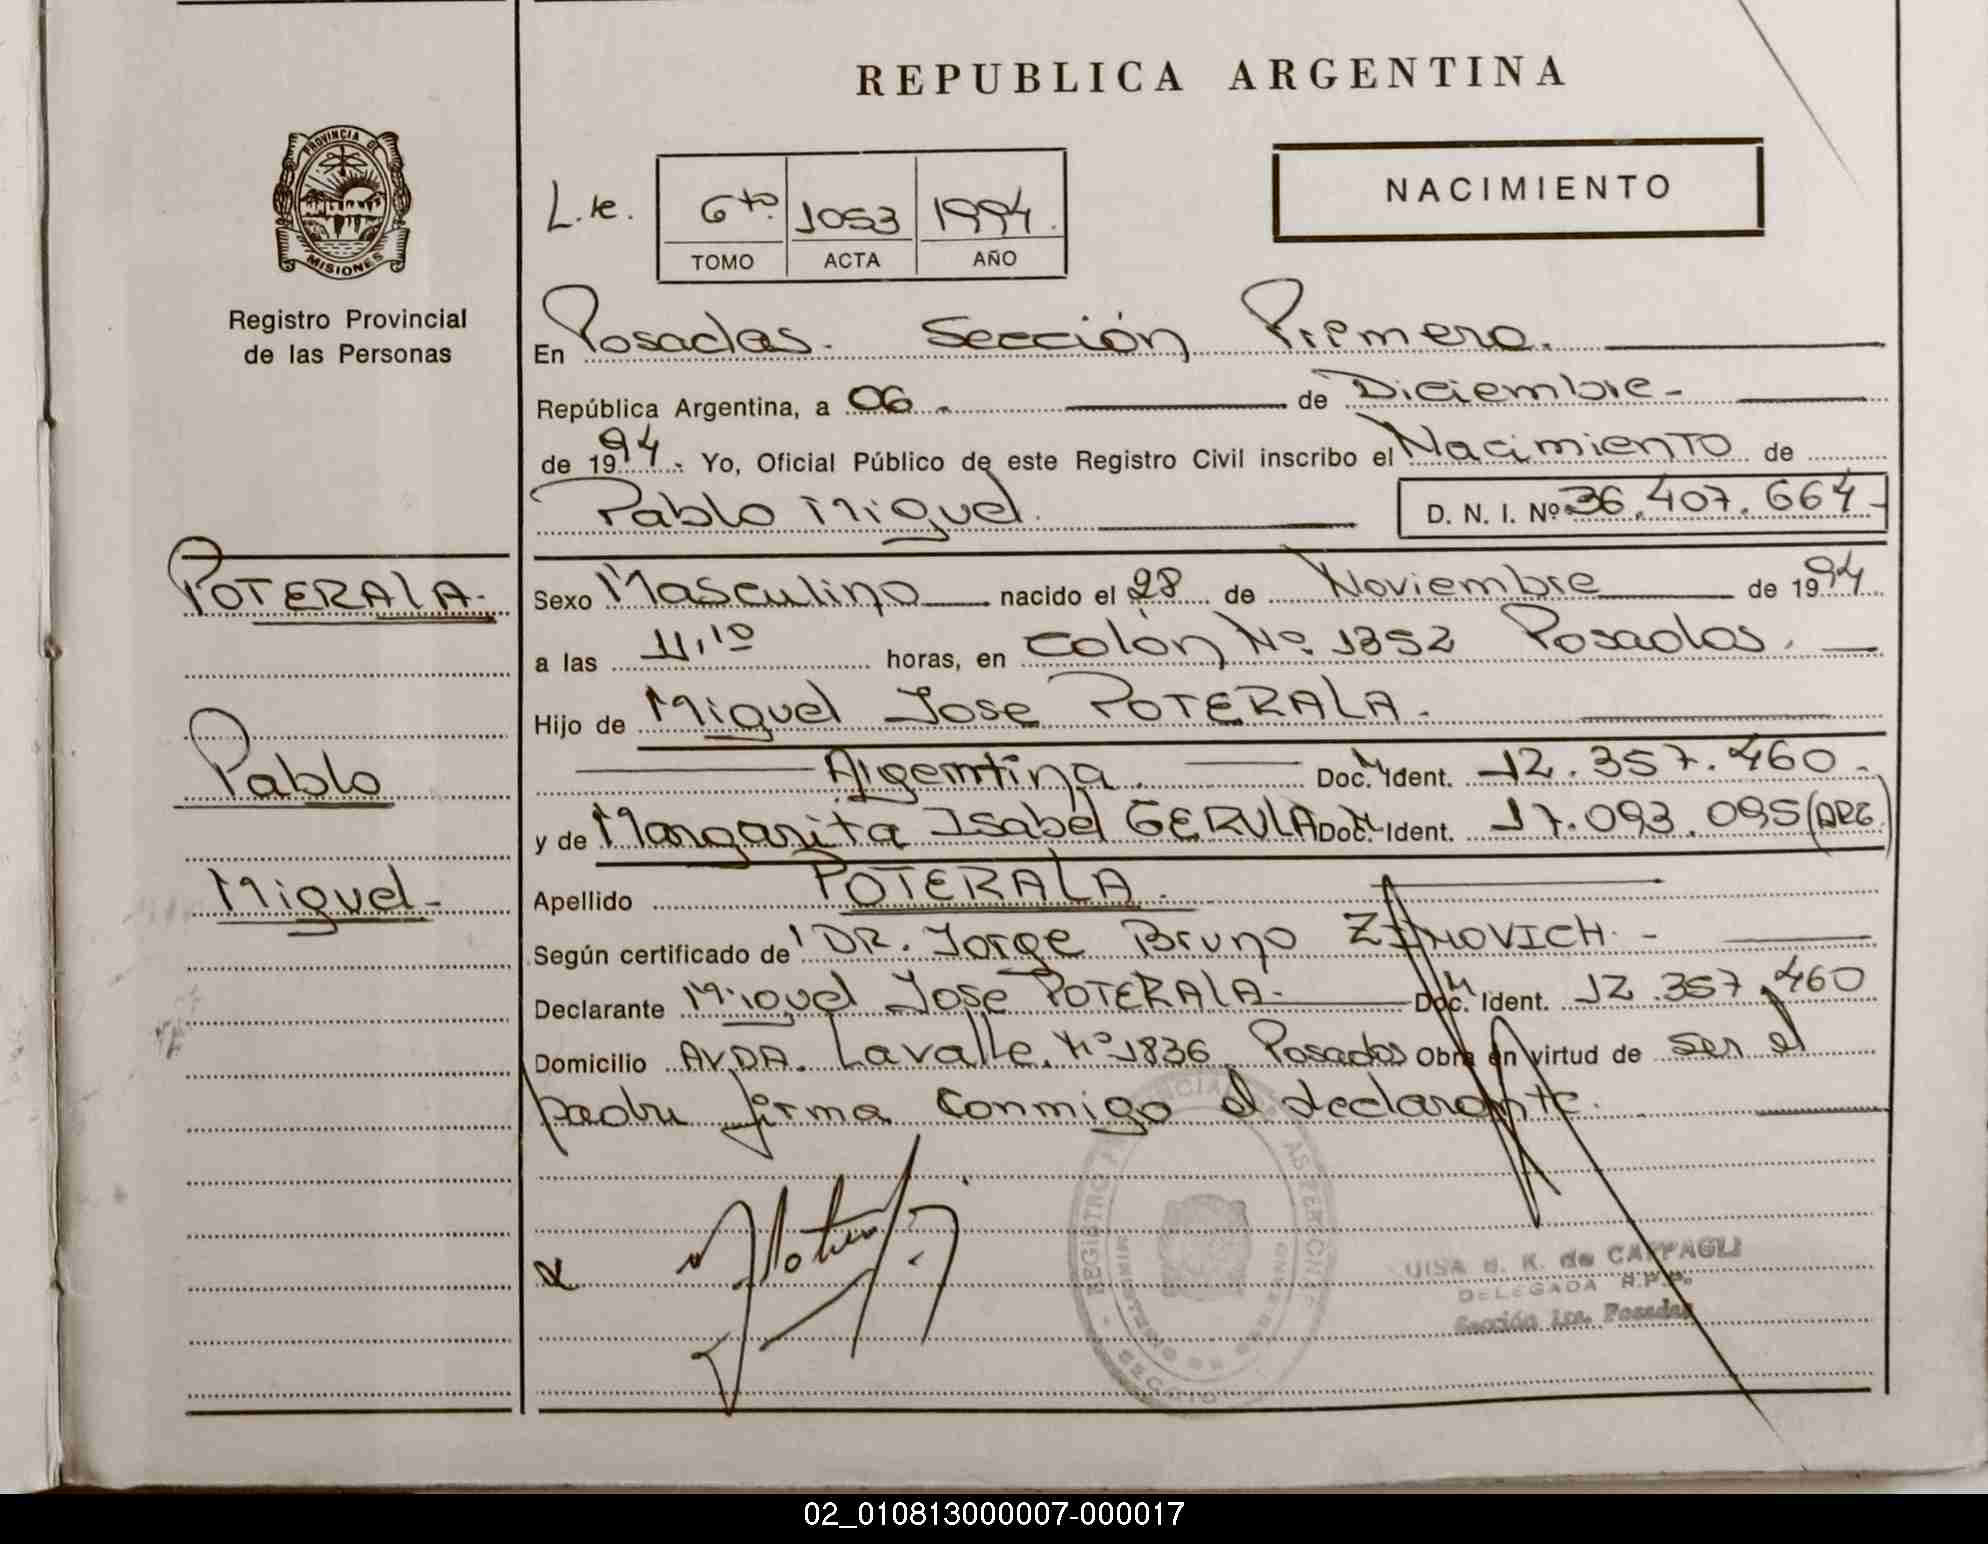 REPUBLICA ARGENTINA
PROVINCIA DE
MISIONES
Registro Provincial
de las Personas
NACIMIENTO
L.e. 6to. 1053 1994.
TOMO ACTA AÑO
En Posadas. Sección Primera.
República Argentina, a 06. de Diciembre-
de 1994. Yo, Oficial Público de este Registro Civil inscribo el Nacimiento de
Pablo Miguel. D. N. I. Nº 36.407.664-
POTERALA.
Pablo
Miguel-
Sexo Masculino nacido el 28 de Noviembre de 1994
a las 11,10 horas, en Colón Nº 1352 Posadas.
Hijo de Miguel Jose POTERALA.
Argentina. Doc. M Ident. 12.357.460.
y de Margarita Isabel GERULA Doc. M Ident. 17.093.095 (ARG.)
Apellido POTERALA.
Según certificado de DR. Jorge Bruno ZINOVICH.-
Declarante Miguel Jose POTERALA- Doc. M Ident. 12.357.460
Domicilio AVDA. Lavalle. Nº 1836 Posadas Obra en virtud de ser el
padre firma conmigo el declarante.
x
REGISTRO
MISIONES
UISA H. K. de CAFFAGLI
DELEGADA R.P.P.
Sección 1ra. Posadas
02_010813000007-000017